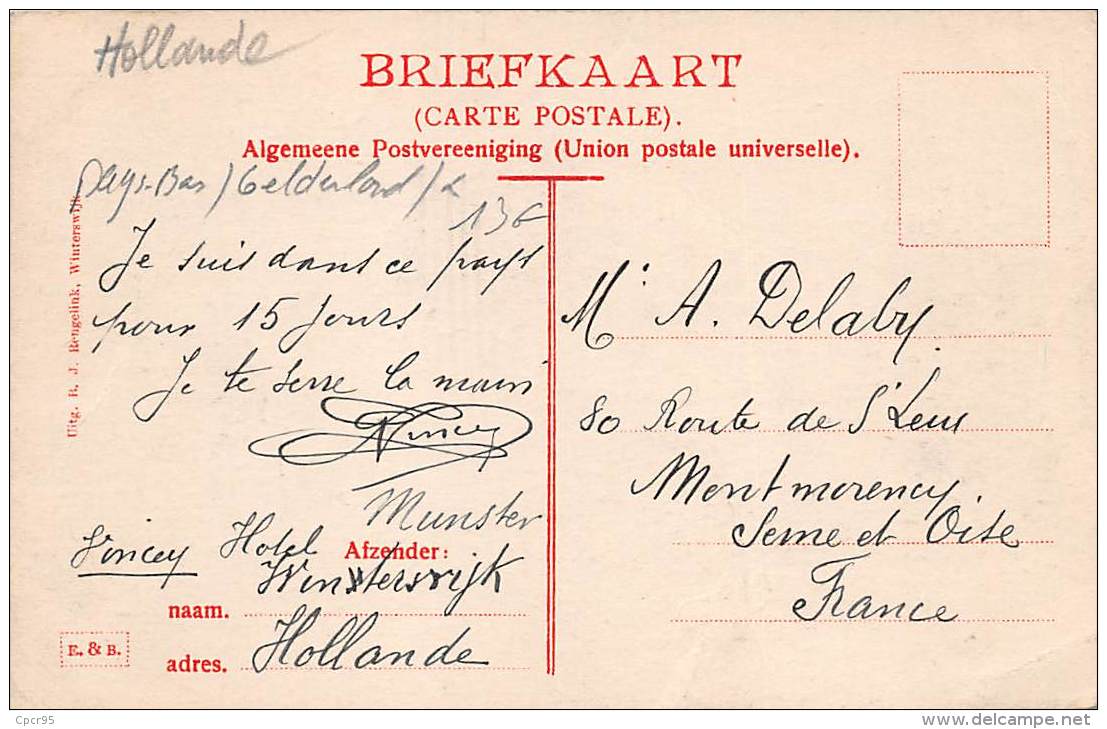 Hollande
BRIEFKAART
(CARTE POSTALE).
Algemeene Postvereeniging (Union postale universelle).
Pays-Bas / Gelderland /
136
Uitg. B. J. Rengelink, Winterswijk
Je suis dans ce pays
pour 15 jours
Je te serre la main
Vincey
Munster
Vincey Hotel
Afzender:
Winsterswijk
naam.
Hollande
adres.
E. & B.
Mr A. Delaby.
80 Route de St Leu
Montmorency.
Seine et Oise
France
Cpcr95
www.delcampe.net